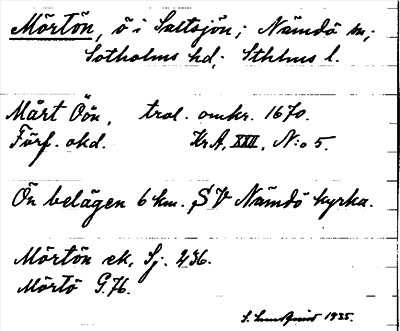 Mörtön, ö i Saltsjön; Nämdö sn,
Sotholms hd; Sthlms l.
Mårt Öön, trol. omkr. 1670.
Förf. okd. KrA, XXII, N:o 5.
Ön belägen 6 km. SV Nämdö kyrka.
Mörtön ek, Sj. 436.
Mörtö G.76.
S. 1935.